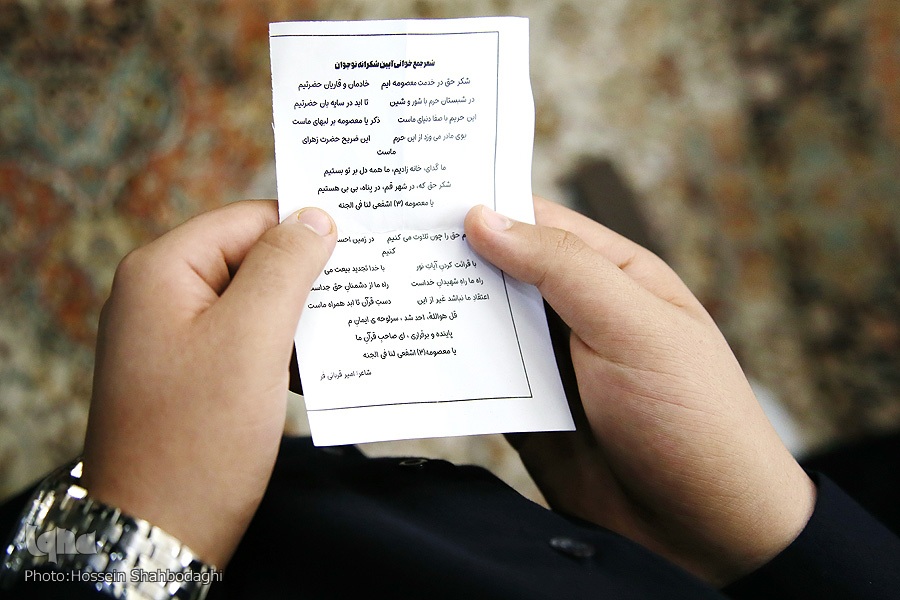 شعر جمع خوانی آیین شکرانه نوجوان
شکر حق در خدمت معصومه ایم خادمان و قاریان حضرتیم
در شبستان حرم با شور و شین تا ابد در سایه بان حضرتیم
این حریم با صفا دنیای ماست ذکر یا معصومه بر لبهای ماست
بوی مادر می وزد از این حرم این ضریح حضرت زهرای
ماست
ما گدای، خانه زادیم، ما همه دل بر تو بستیم
شکر حق که، در شهر قم، در پناه، بی بی هستیم
یا معصومه (۳) اشفعی لنا فی الجنه
حق را چون تلاوت می کنیم در زمین
کنیم
با قرائت کردن آیات نور با خدا تجدید بیعت می
راه ما راه شهیدان خداست راه ما از دشمنان حق جداست
اعتقاد ما نباشد غیر از این دست قرآن تا ابد همراه ماست
قل هوالله، احد شد ، سرلوحه ی ایمان م
پاینده و برقراری ، ای صاحب قرآن ما
یا معصومه(۳) اشفعی لنا فی الجنه
شاعر: امیر قربانی فر
iqna
Photo:Hossein Shahbodaghi